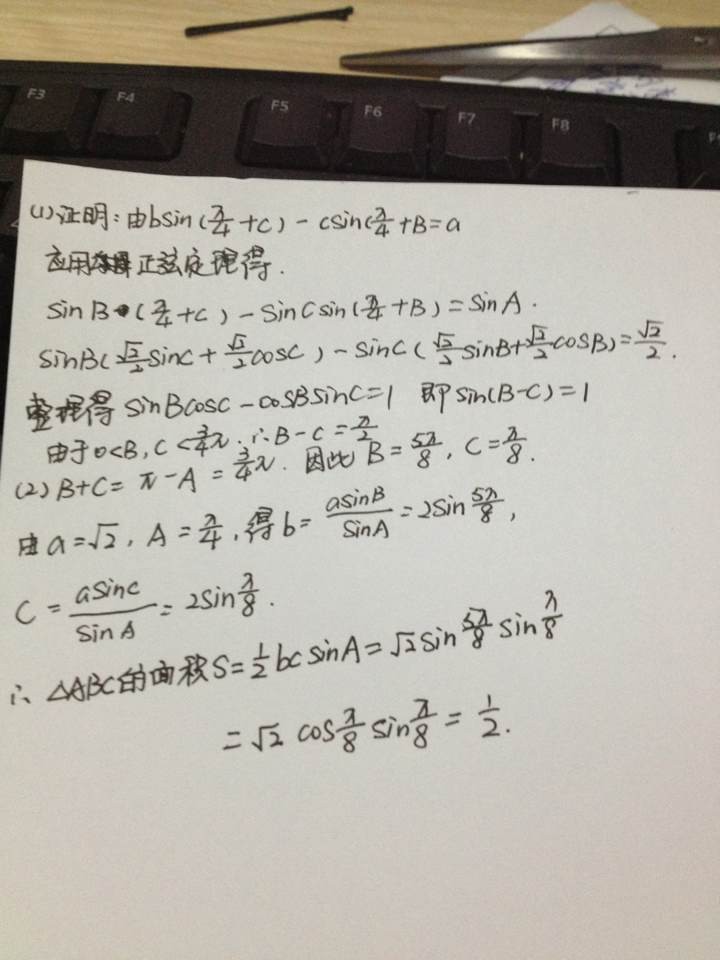 F3 F4 F5 F6 F7 F8
(1)证明:由bsin(π/4+C)-csin(π/4+B=a
应用正弦定理得.
sinB·(π/4+C)-sinCsin(π/4+B)=sinA.
sinB(√2/2sinC+√2/2cosC)-sinC(√2/2sinB+√2/2cosB)=√2/2.
整理得sinBcosC-cosBsinC=1 即sin(B-C)=1
由于0<B,C<3/4π.∴B-C=π/2
(2)B+C=π-A=3/4π.因此B=5π/8,C=π/8.
由a=√2,A=π/4,得b=asinB/sinA=2sin5π/8,
C=asinc/sinA=2sinπ/8.
∴△ABC的面积S=1/2bcsinA=√2sin5π/8sinπ/8
=√2cosπ/8sinπ/8=1/2.